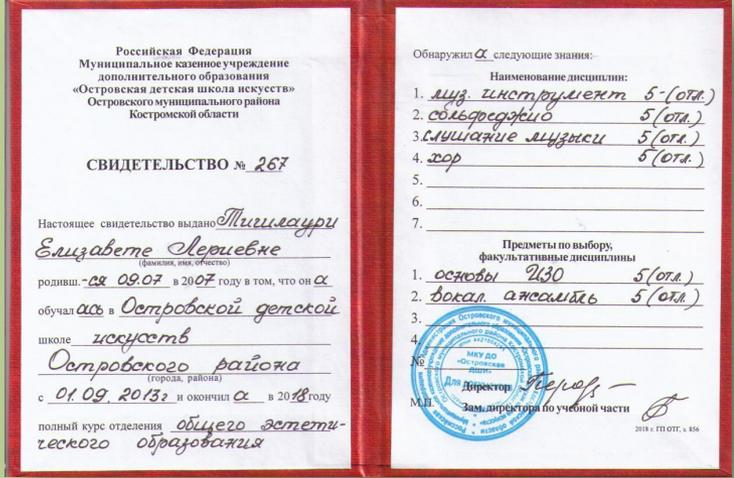 Российская Федерация
Муниципальное казенное учреждение
дополнительного образования
«Островская детская школа искусств»
Островского муниципального района
Костромской области
СВИДЕТЕЛЬСТВО № 267
Настоящее свидетельство выдано Тигилаури
Елизавете Лериевне
(фамилия, имя, отчество)
родивш.-ся 09.07 в 2007 году в том, что он а
обучал ась в Островской детской
школе искусств
Островского района
(города, района)
с 01.09.2013г и окончил а в 2018 году
полный курс отделения общего эстети-
ческого образования
Обнаружил а следующие знания:
Наименование дисциплин:
1. муз. инструмент 5-(отл.)
2. сольфеджио 5(отл.)
3. слушание музыки 5(отл.)
4. хор 5(отл.)
5.
6.
7.
Предметы по выбору,
факультативные дисциплины
1. основы ИЗО 5(отл.)
2. вокал. ансамбль 5(отл.)
3.
4.
№
МКУ ДО
«Островская
ДШИ»
Для
Директор
М.П.
Зам. директора по учебной части
2018 г. ГП ОТГ, з. 856